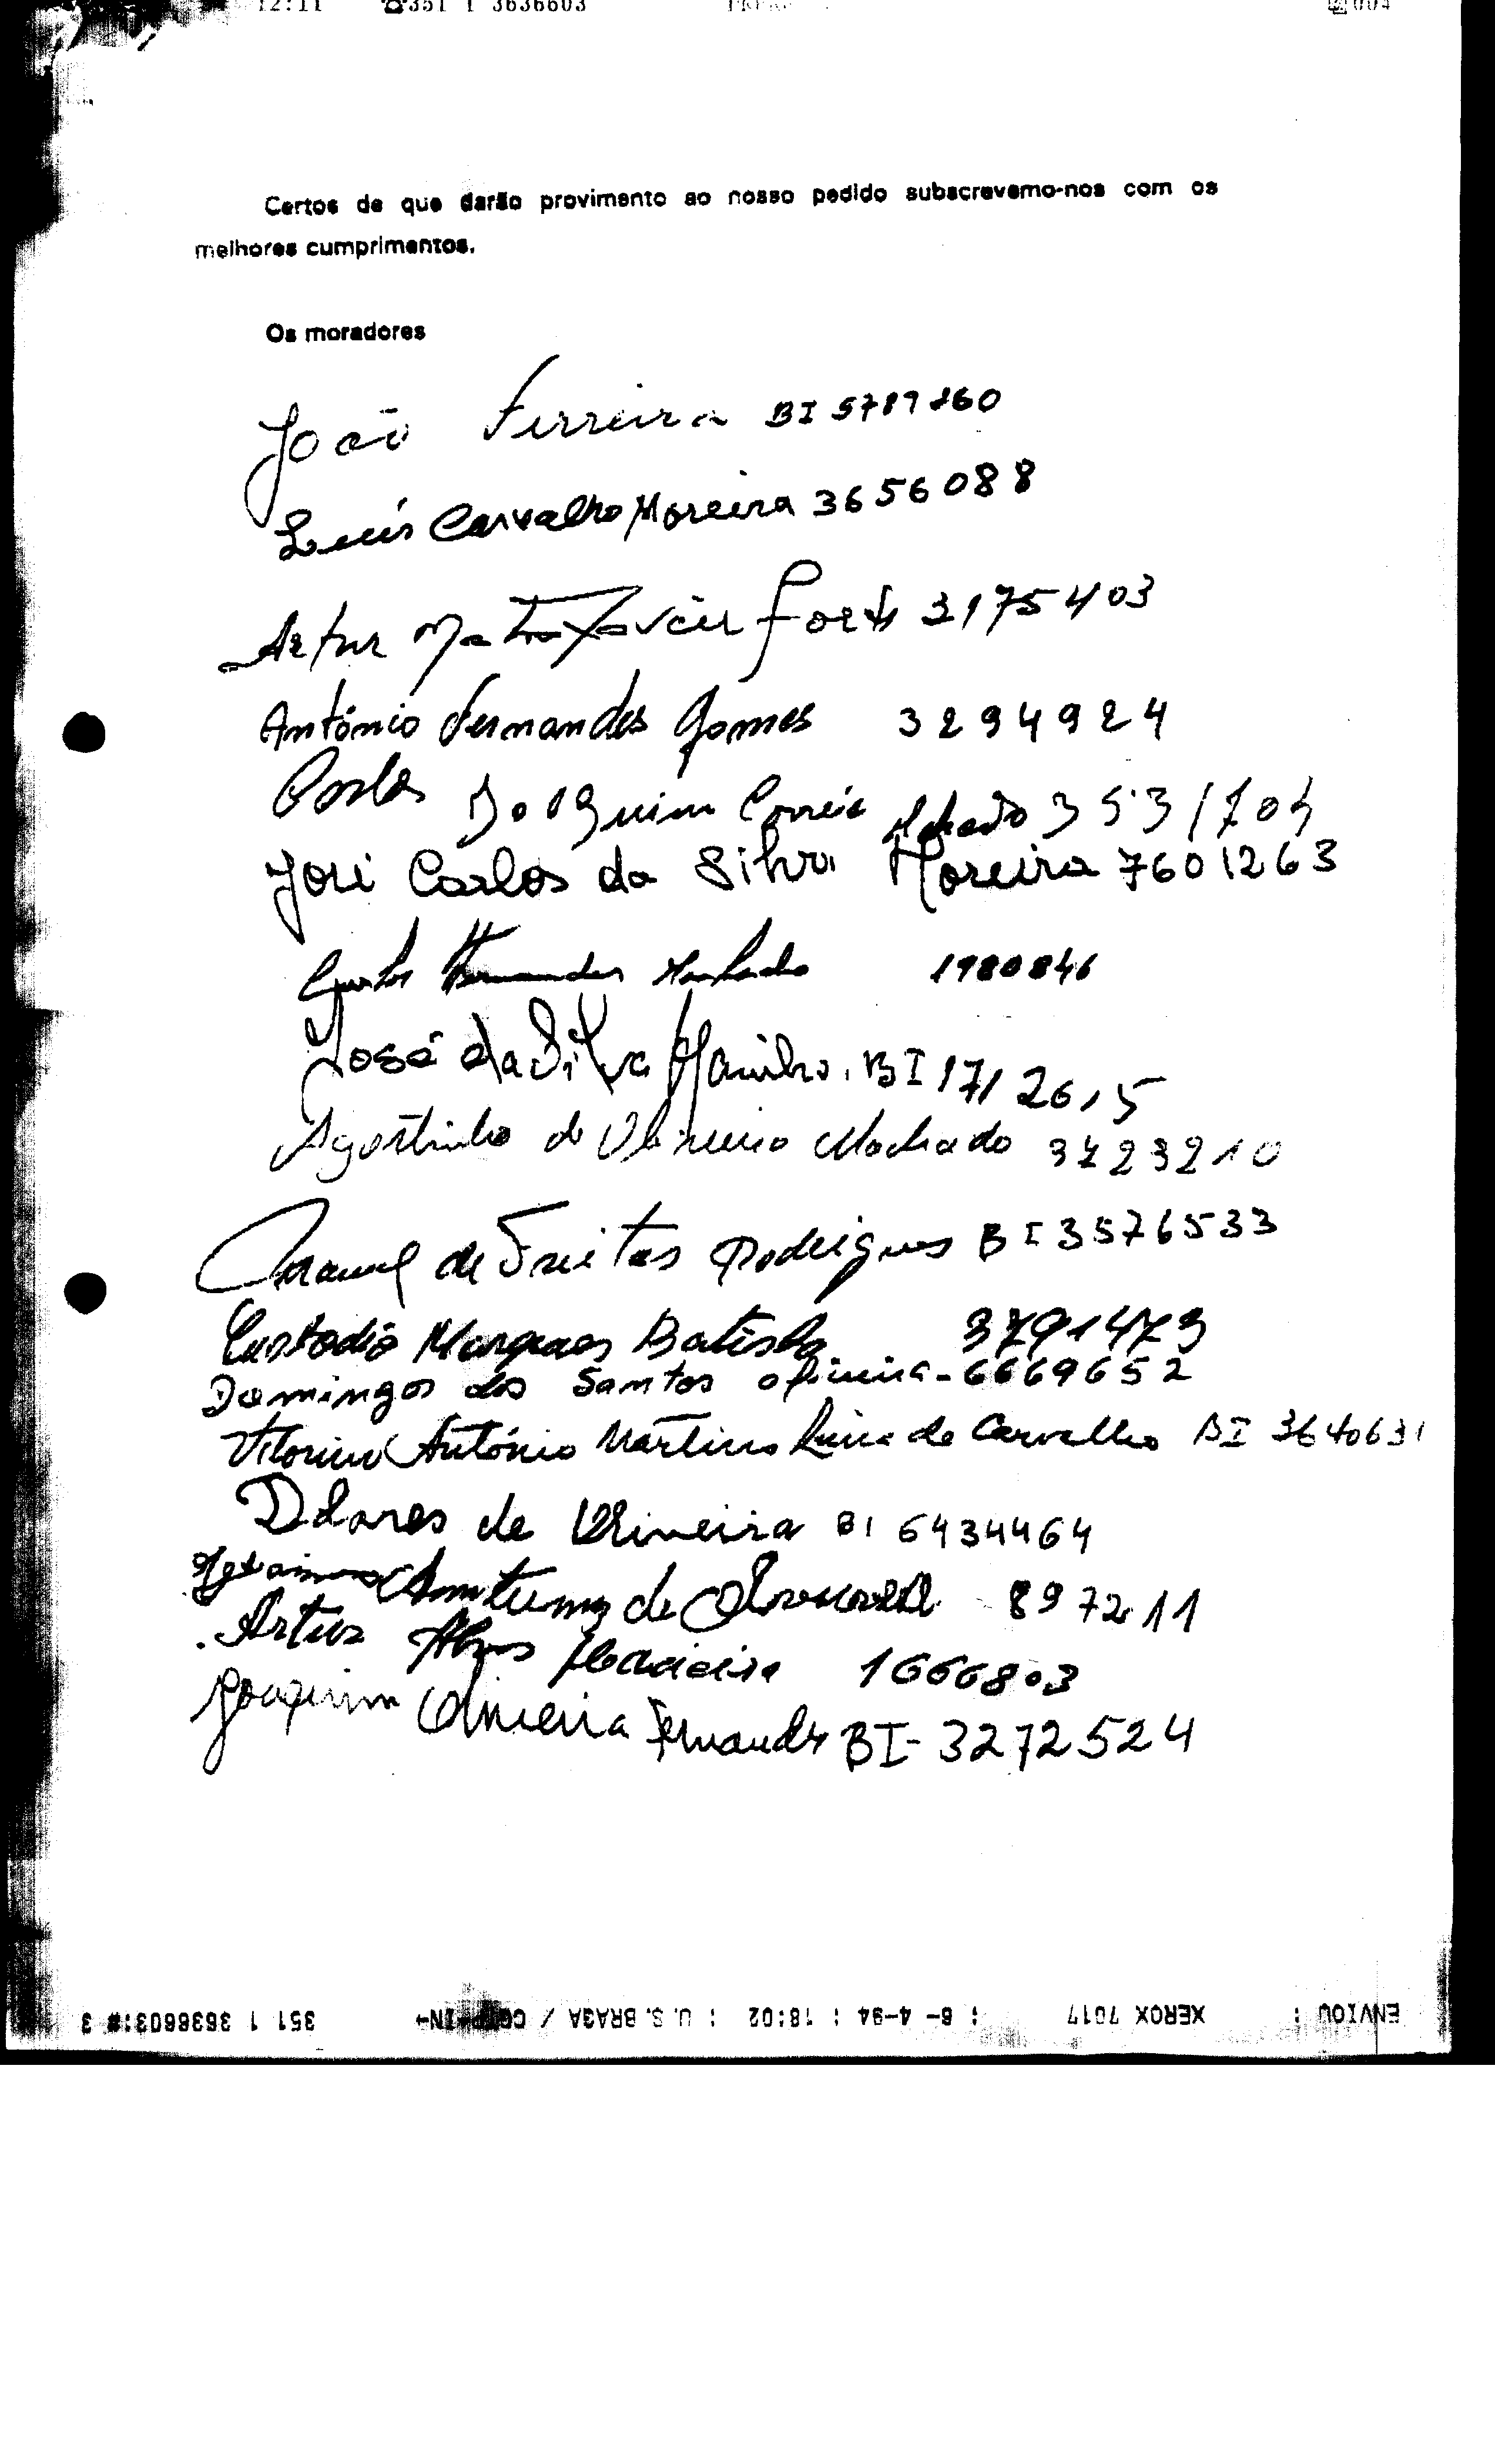 12:11 ☎351 1 3636603 004
Certos de que darão provimento ao nosso pedido subscrevemo-nos com os
melhores cumprimentos.
Os moradores
João Ferreira BI 5789260
Luís Carvalho Moreira 3656088
Artur Xavier 3175403
António Fernandes Gomes 3294924
Carlos Joaquim Correia Machado 3531704
José Carlos da Silva Moreira 7601263
Carlos Fernandes Machado 1980846
José da Silva BI 1712615
Agostinho de Oliveira Machado 3723210
Manuel de Freitas Rodrigues BI 3576533
Custodio Marques Batista 3791473
Domingos dos Santos oliveira - 6669652
António Martins de Carvalho BI 3640631
Dolares de Oliveira BI 6434464
de 897211
Artur Alves 1666803
Joaquim Oliveira Fernandes BI - 3272524
ENVIOU : XEROX 7017 : 6- 4-94 : 18:02 : U. S. BRAGA / 351 1 3636603:# 3